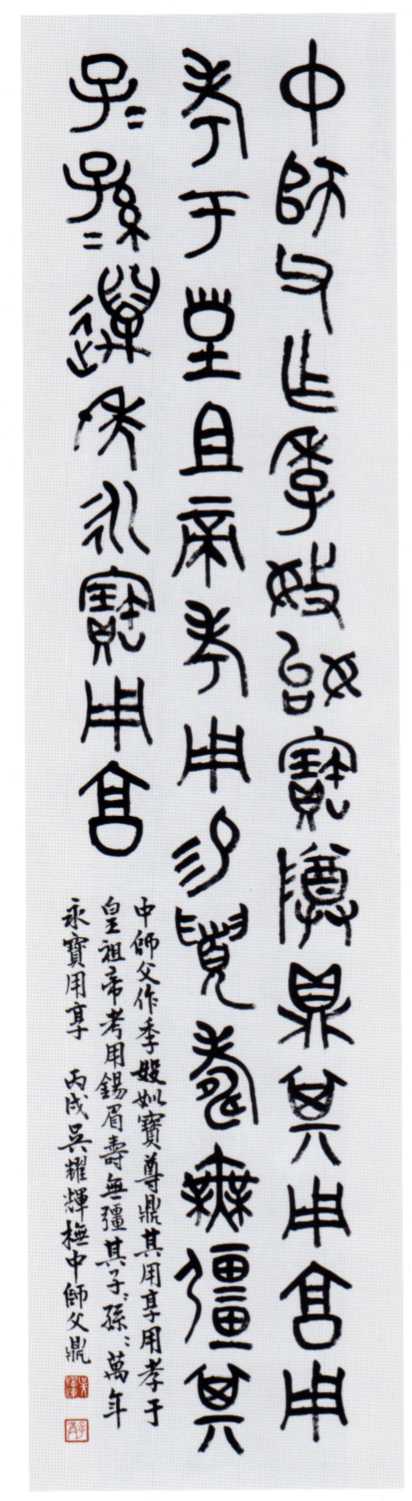 中師父乍季姒寶尊鼎其用享用
孝于皇且帝考用易眉壽無彊其
子〻孫〻邁年永寶用享
中師父作季姒寶尊鼎其用享用孝于
皇祖帝考用錫眉壽無彊其子〻孫〻萬年
永寶用享 丙戌吳耀輝橅中師父鼎